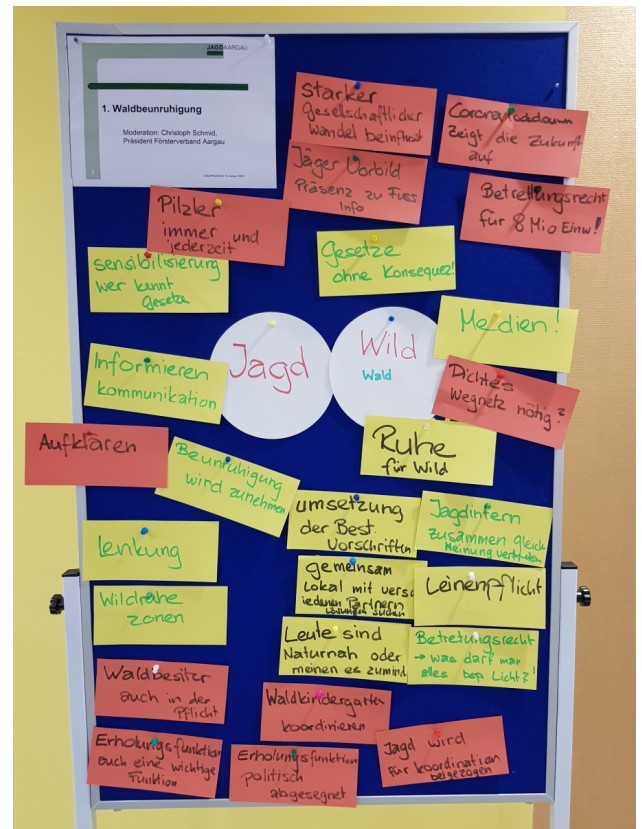 JAGDAARGAU
1. Waldbeunruhigung
Moderation: Christoph Schmid,
Präsident Försterverband Aargau
1
starker
Gesellschaftlicher
Wandel beinflusst
Coronalockdown
zeigt die Zukunft
auf
Jäger Vorbild
Präsenz zu Fuss
Info
Betrettungsrecht
für 8 Mio Einw!
Pilzler
immer und
jederzeit
sensibilisierung
wer kennt
Gesetze
Gesetze
ohne Konsequez!
Medien!
Jagd
Wild
Wald
Informieren
kommunikation
Dichtes
Wegnetz nötig?
Aufklären
Beunruhigung
wird zunehmen
Ruhe
für Wild
umsetzung
der Best.
Vorschriften
Jagdintern
zusammen gleich
Meinung vertreten
Lenkung
gemeinsam
Lokal mit versch
iedenen Partnern
Lösungen suchen
Leinenpflicht
Wildruhe
zonen
Leute sind
Naturnah oder
meinen es zumind
Betretungsrecht
→ was darf man
alles bsp Licht?!
Waldbesitzer
auch in der
Pflicht
Waldkindergarten
koordinieren
Erholungsfunktion
auch eine wichtige
Funktion
Erholungsfunktion
politisch
abgesegnet
Jagd wird
für koordination
beigezogen